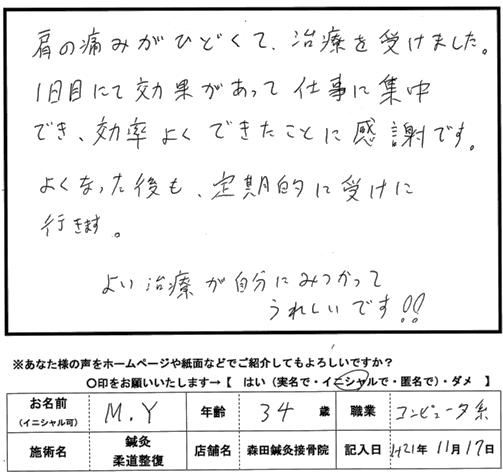 肩の痛みがひどくて、治療を受けました。
1日目にて効果があって仕事に集中
でき、効率よくできたことに感謝です。
よくなった後も、定期的に受けに
行きます。
よい治療が自分にみつかって
うれしいです!!
※あなた様の声をホームページや紙面などでご紹介してもよろしいですか？
○印をお願いいたします→【 はい（実名で・イニシャルで・匿名で）・ダメ 】
お名前（イニシャル可） M.Y 年齢 34 歳 職業 コンピュータ系
施術名 鍼灸 柔道整復 店舗名 森田鍼灸接骨院 記入日 H21年 11月 17日